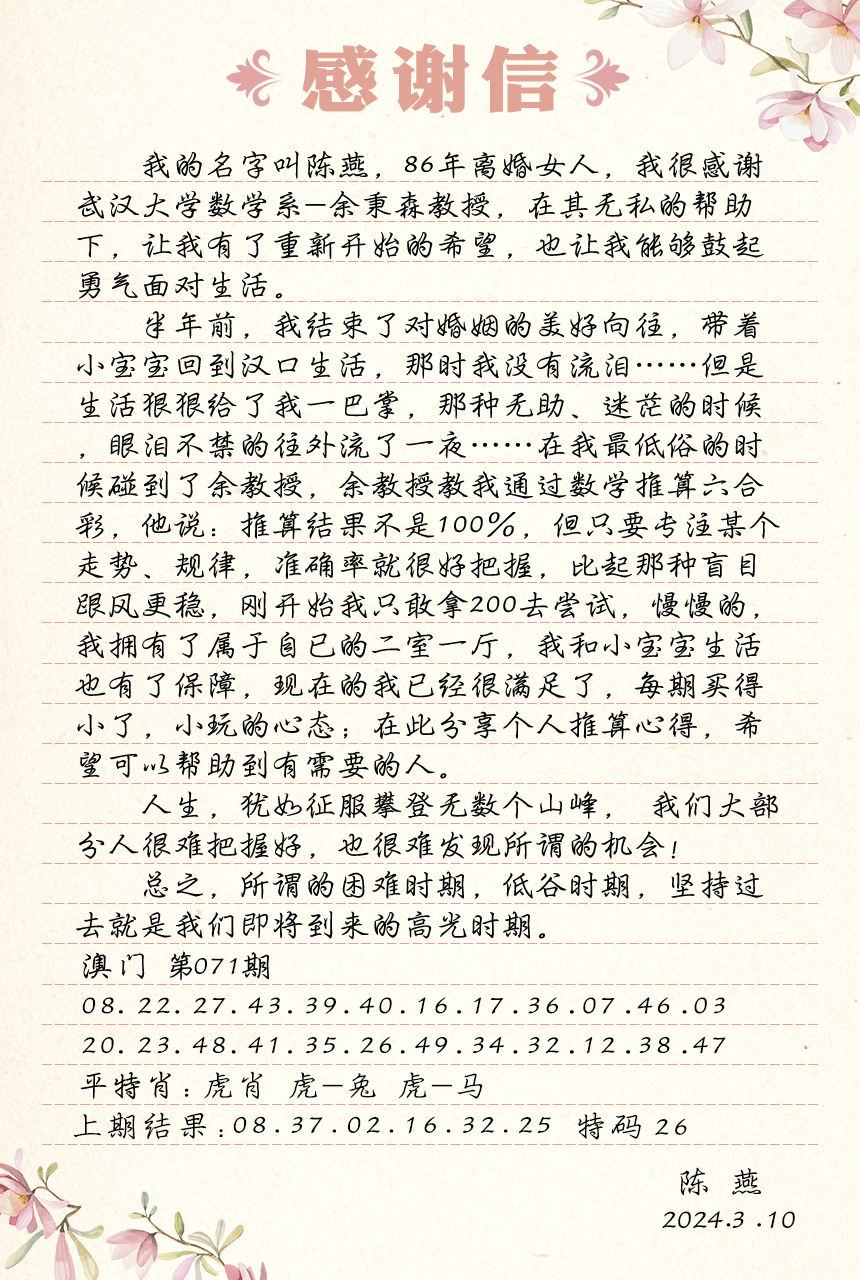 感谢信
我的名字叫陈燕，86年离婚女人，我很感谢
武汉大学数学系—余秉森教授，在其无私的帮助
下，让我有了重新开始的希望，也让我能够鼓起
勇气面对生活。
半年前，我结束了对婚姻的美好向往，带着
小宝宝回到汉口生活，那时我没有流泪……但是
生活狠狠给了我一巴掌，那种无助、迷茫的时候
，眼泪不禁的往外流了一夜……在我最低俗的时
候碰到了余教授，余教授教我通过数学推算六合
彩，他说：推算结果不是100%，但只要专注某个
走势、规律，准确率就很好把握，比起那种盲目
跟风更稳，刚开始我只敢拿200去尝试，慢慢的，
我拥有了属于自已的二室一厅，我和小宝宝生活
也有了保障，现在的我已经很满足了，每期买得
小了，小玩的心态；在此分享个人推算心得，希
望可以帮助到有需要的人。
人生，犹如征服攀登无数个山峰， 我们大部
分人很难把握好，也很难发现所谓的机会！
总之，所谓的困难时期，低谷时期，坚持过
去就是我们即将到来的高光时期。
澳门 第071期
08.22.27.43.39.40.16.17.36.07.46.03
20.23.48.41.35.26.49.34.32.12.38.47
平特肖：虎肖 虎—兔 虎—马
上期结果：08.37.02.16.32.25 特码 26
陈 燕
2024.3.10